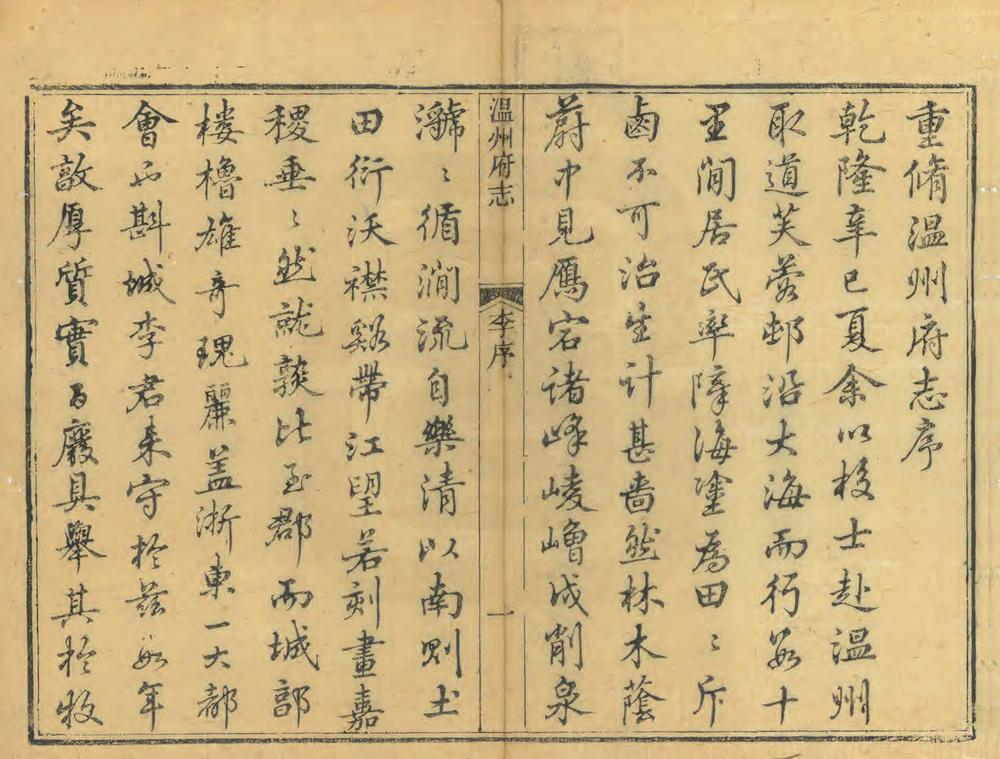 重脩温州府志序
乾隆辛巳夏余以校士赴温州
取道芙蓉邨沿大海而行數十
里間居民率障海塗為田〻斥
鹵不可治生计甚嗇然林木蔭
蔚中見鴈宕诸峰崚嶒戍削泉
温州府志
李序
一
瀡〻循澗流自樂清以南則土
田衍沃襟谿帶江望若刻畫嘉
稷垂〻然就穎比至郡而城郭
楼櫓雄奇瑰麗盖浙東一大都
會而斟城李君来守於茲數年
矣敦厚質實百廢具舉其於牧